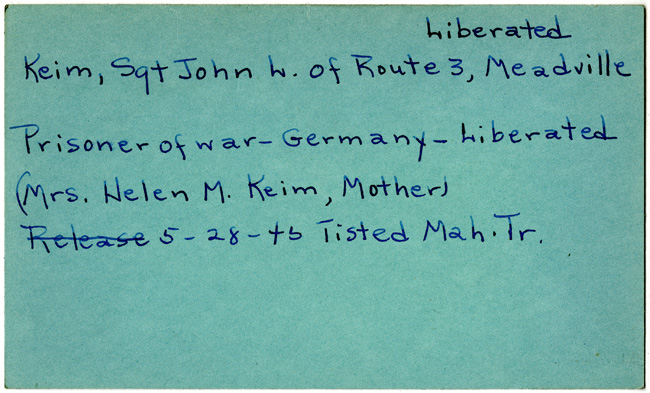 Liberated
Keim, Sgt John L. of Route 3, Meadville
Prisoner of war - Germany - Liberated
(Mrs. Helen M. Keim, Mother)
Release 5-28-45 Tisted Mah. Tr.